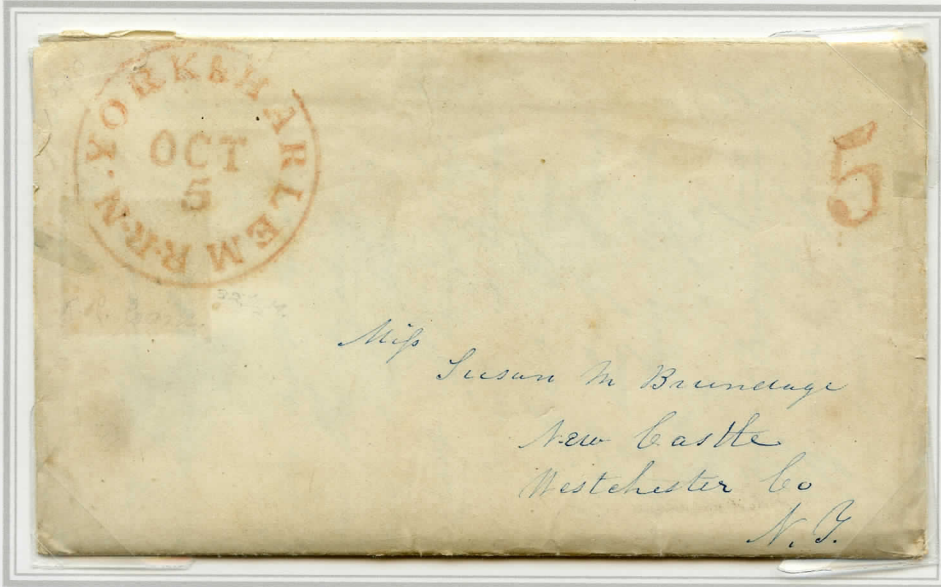 N. YORK & HARLEM R.R.
OCT
5
5
Miss
Susan M Brundage
New Castle
Westchester Co
N. Y.